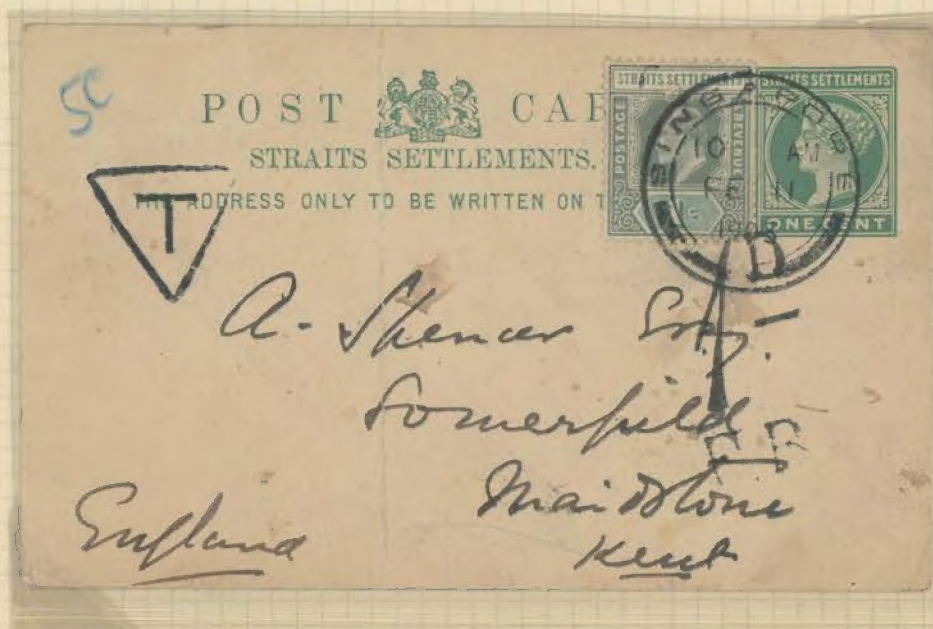 5c
POST CAR
STRAITS SETTLEMENTS.
THE ADDRESS ONLY TO BE WRITTEN ON T
STRAITS SETTLEMEN
POSTAGE
REVENUE
STRAITS SETTLEMENTS
ONE CENT
SINGAPORE
10 AM
11
D
T
1
A. Spencer Esq.
Somerfield
Maidstone
Kent
England